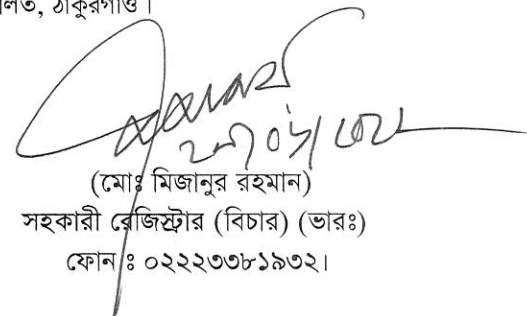 ঠাকুরগাঁও।
(মোঃ মিজানুর রহমান)
সহকারী রেজিস্ট্রার (বিচার) (ভারঃ)
ফোন ঃ ০২২২৩৩৮১৯৩২।